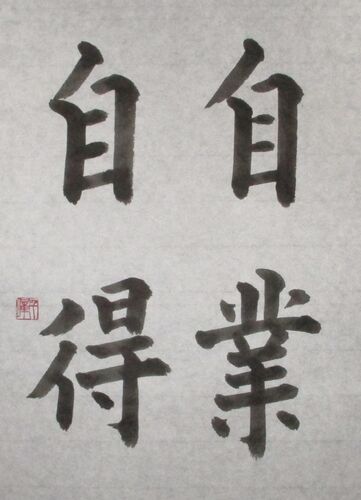 自業
自得